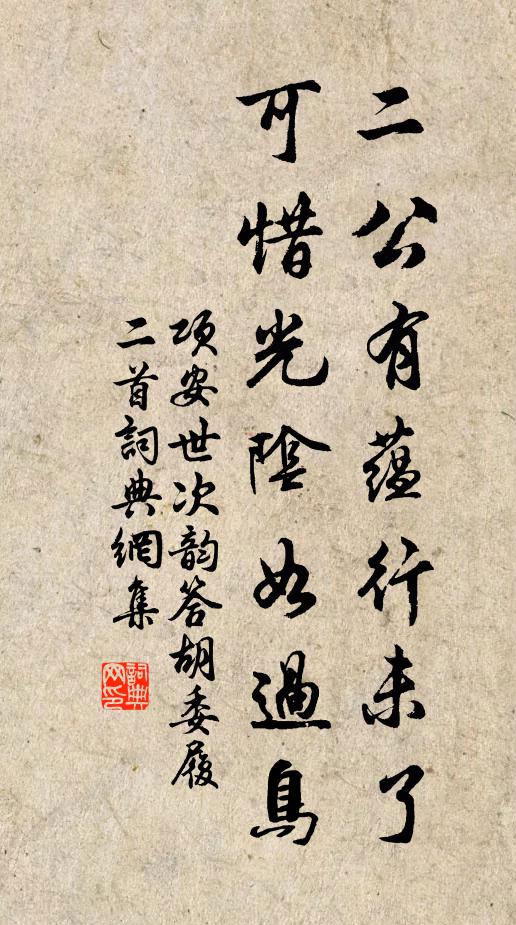 二公有蕴行未了
可惜光陰如過鳥
项安世次韵答胡委履
二首詞典網集
詞典
网印